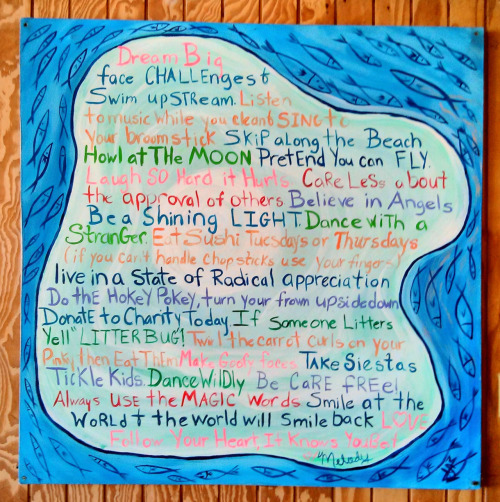 Dream Big
face CHALLEngest &
Swim upSTReam. Listen
to music while you clean & SING to
your broomstick SKiP aLong the Beach
Howl at THe MOON PretEnd You can FLY.
Laugh SO Hard it HuRts CaRe LeSs about
the approval of others Believe in Angels
Be a Shining LIGHT. Dance WiTH a
StranGer. Eat Sushi Tuesdays or Thursdays
(if you can't handle chopsticks use your fingers)
live in a State of Radical appreciation
Do thE HoKeY PoKey, turn your frown upside down
DonatE to CHarity Today, If Someone Litters
Yell "LITTERBUG"! Twirl the carrot curls on your
Pinky, then Eat THEm Make Goofy faces TAKe SieStas
TicKle Kids. DanceWiLDly Be CaRE fREe!
Always USE the MAGIC Words Smile at the
WoRLD & the World will Smile back LOVE
Follow Your Heart, It Knows You Best
Melody